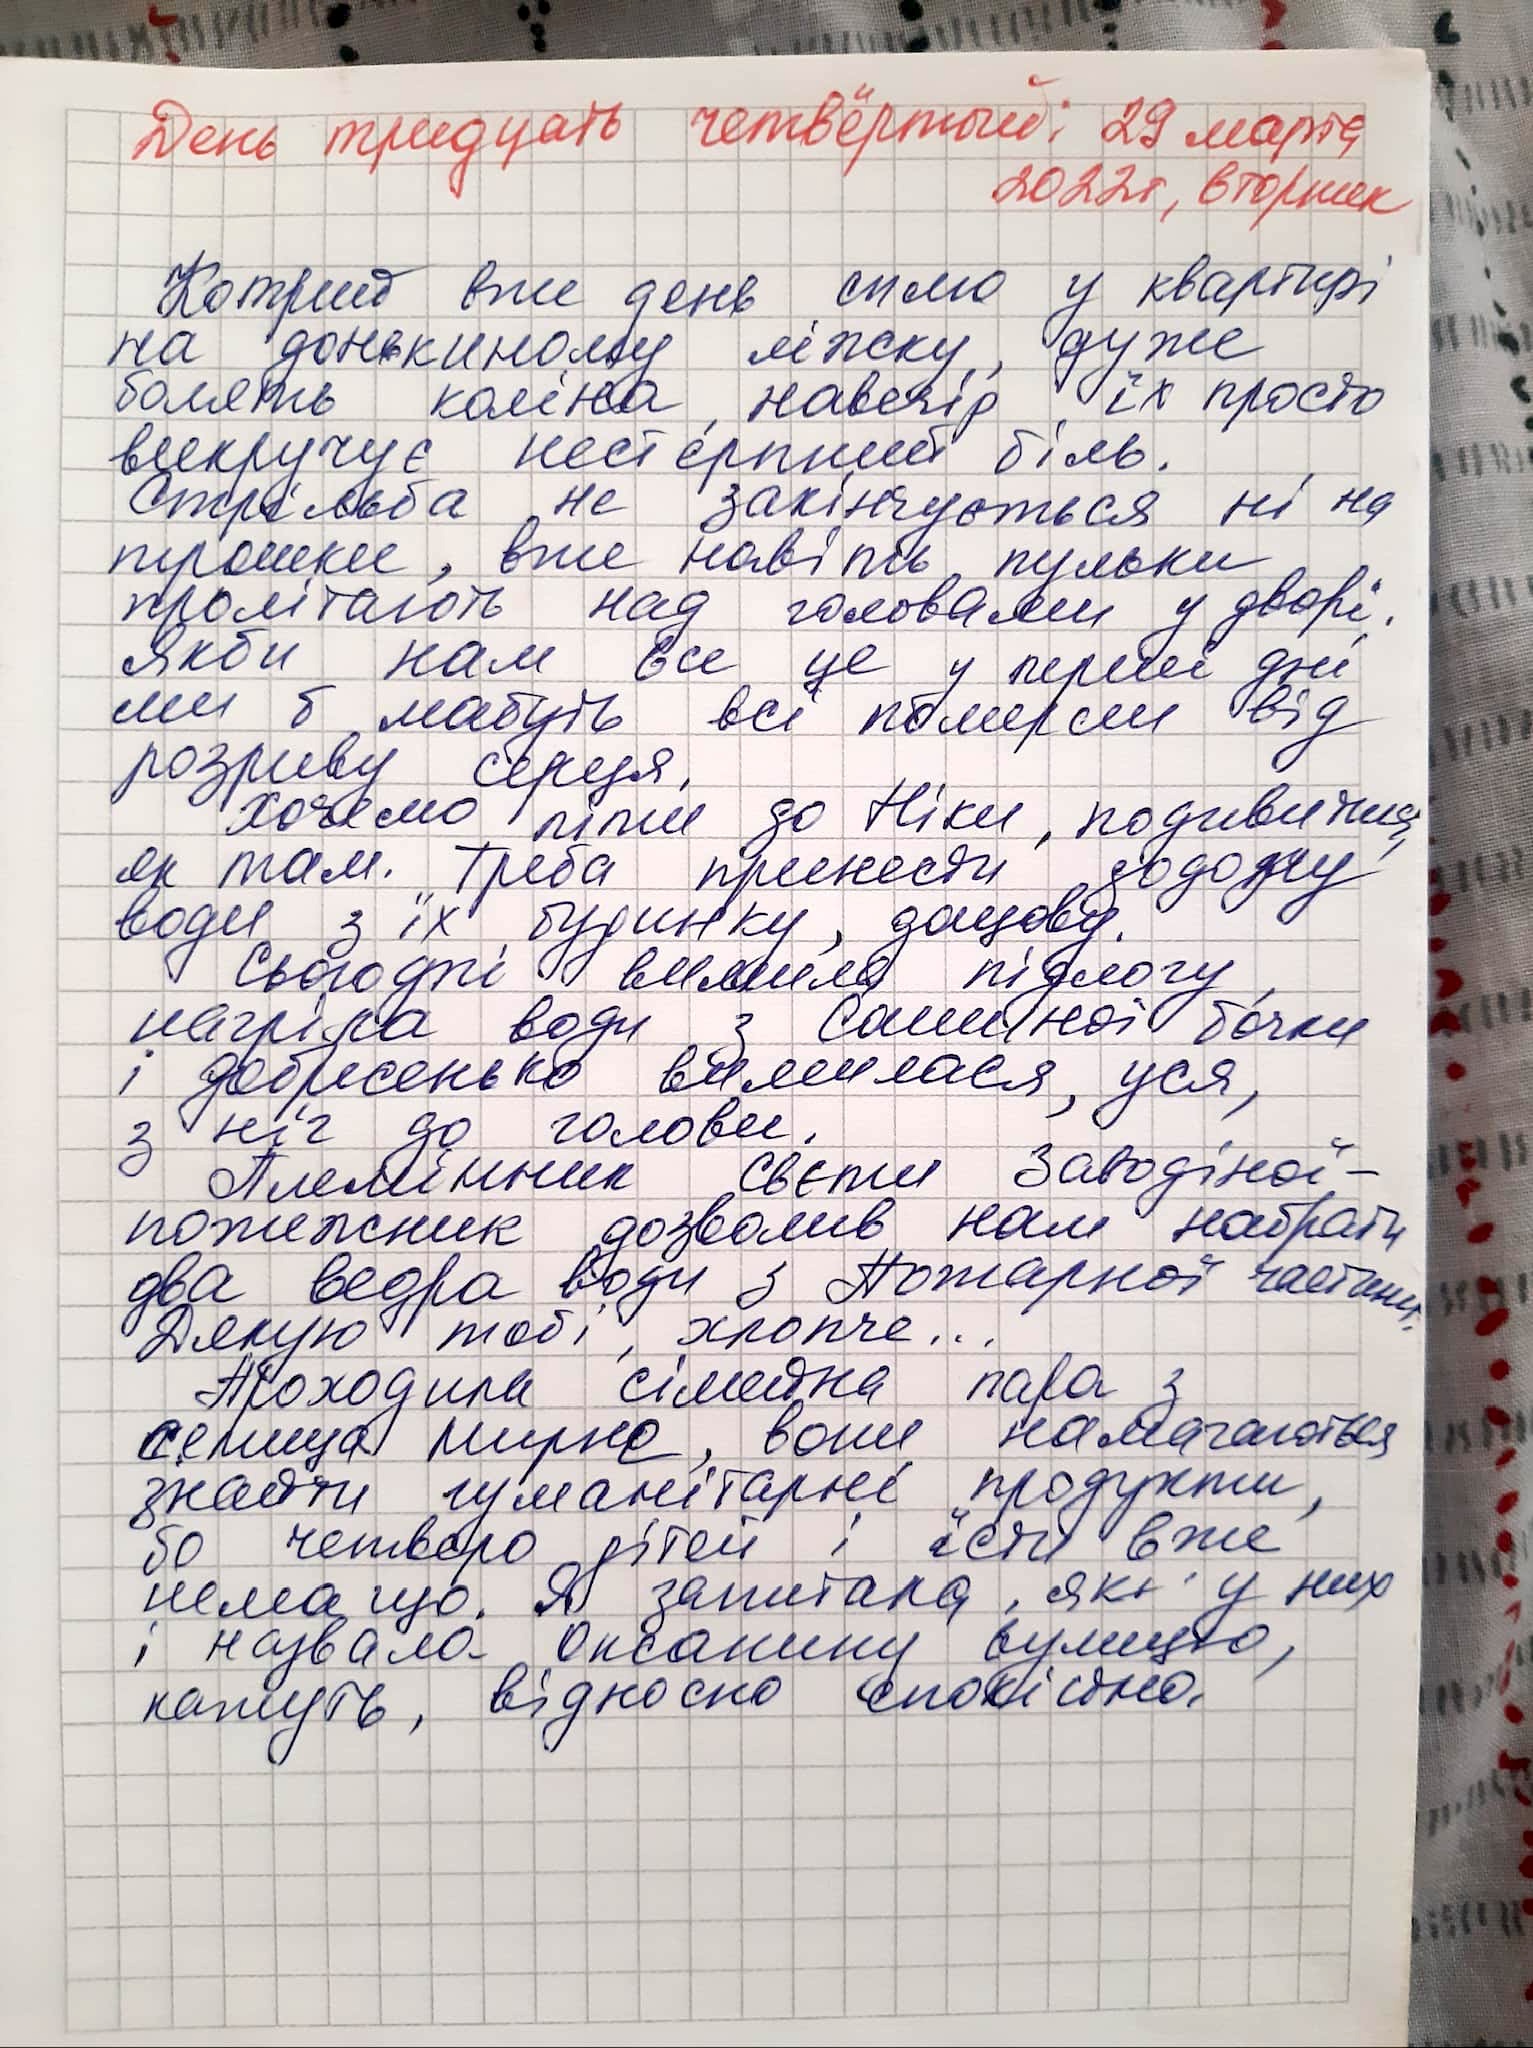 День тридцать четвёртый: 29 марта
2022г, вторник
Котрий вже день сплю у квартирі
на донькиному ліжку, дуже
болять коліна, навечір їх просто
викручує нестерпний біль.
Стрільба не закінчується ні на
трошки, вже навіть пульки
пролітають над головами у дворі.
Якби нам все це у перші дні,
ми б мабуть всі померли від
розриву серця.
Хочемо піти до Ніки, подивитися,
як там. Треба принести додому
води з їх будинку, дощову.
Сьогодні вимила підлогу,
нагріла води з Сашиної бочки
і добрисенько вимилася, уся,
з ніг до голови.
Племінник Свєти Заводіної -
пожежник дозволив нам набрати
два ведра води з Пожарної частини.
Дякую тобі, хлопче...
Проходила сімейна пара з
селища Мирне, вони намагаються
знайти гуманітарні продукти,
бо четверо дітей і їсти вже
нема що. Я запитала, як у них
і назвала Оксанину вулицю,
кажуть, відносно спокійно.